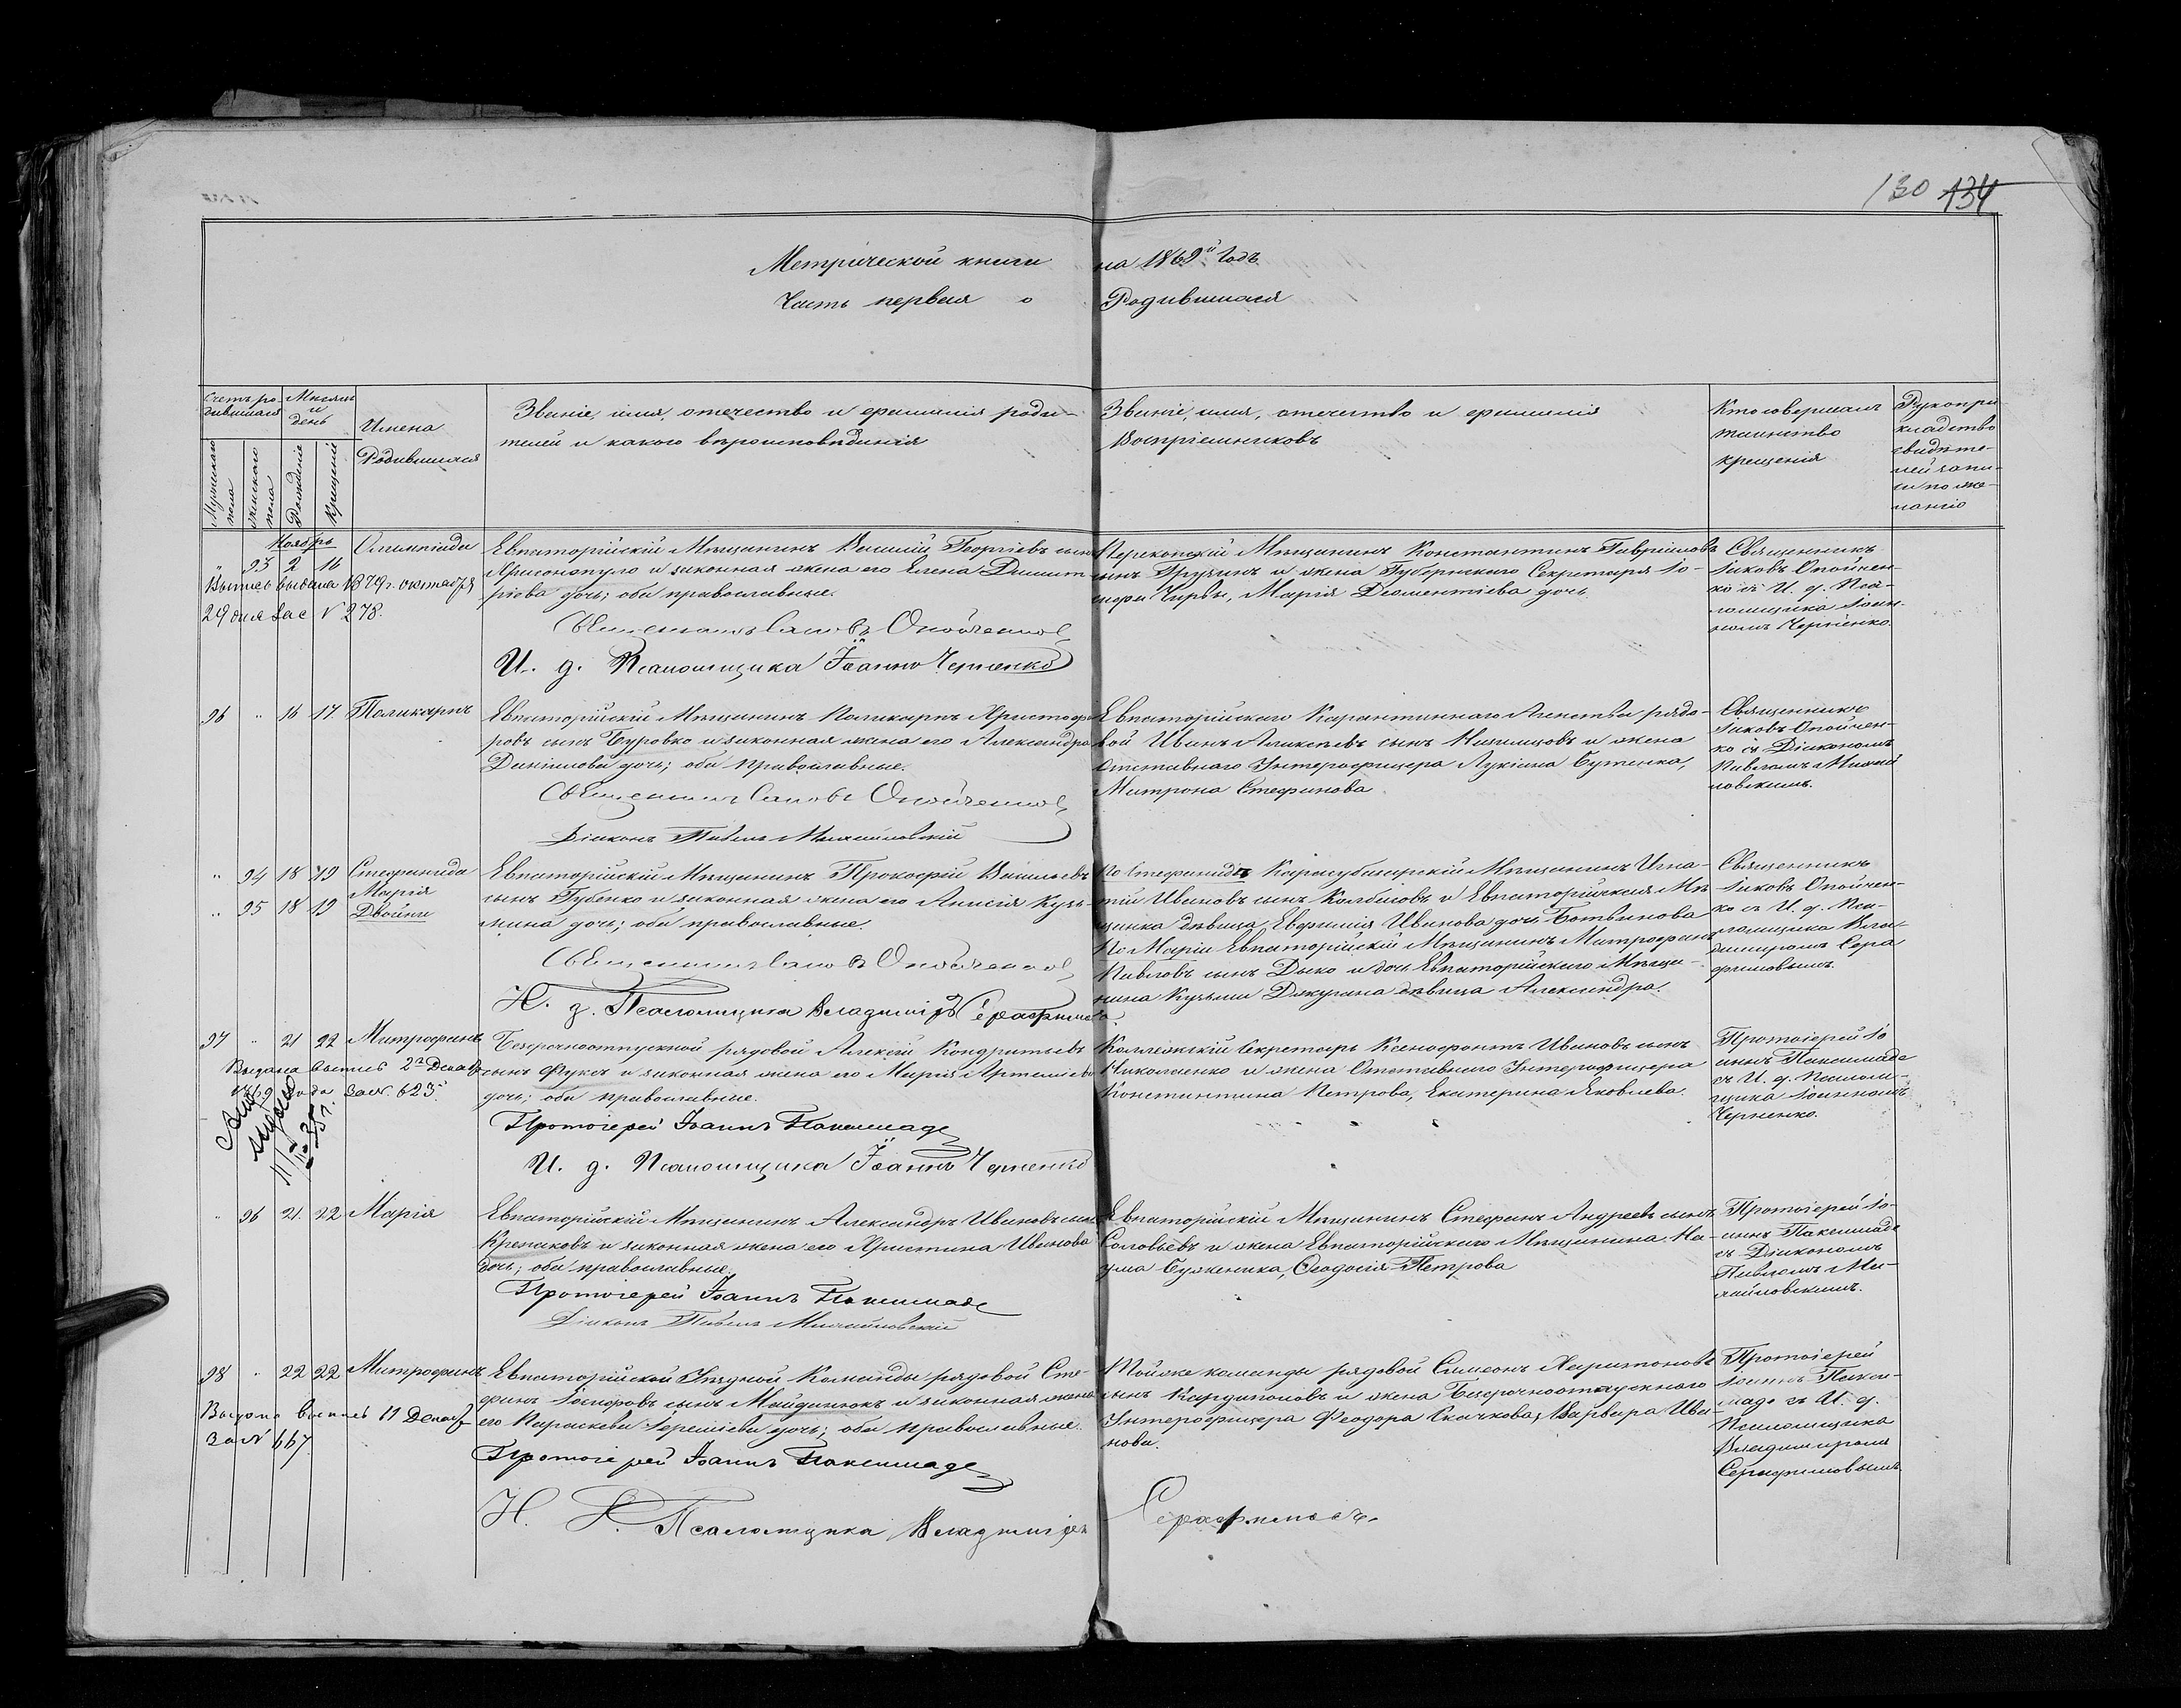 130 134
Метрической книги на 1869й годъ
Часть первая о Родившихся
Счетъ ро- Мѣсяцъ
дившихся и
день
Мужескаго пола
женскаго пола
Рожденіе
Крещеніе
Имена
Родившихся
Званіе, имя, отчество и фамилія роди-
телей и какого вѣроисповѣданія
Званіе, имя, отчество и фамилія
Воспріемниковъ
Кто совершалъ
таинство
крещенія
Рукопри
кладство
свидѣте-
лей запи-
си по же-
ланію
Ноябрь
" 93 2 16 Олимпіада
Выпись выдана 1879 г. октября
29 дня за с № 278.
Евпаторійскій Мѣщанинъ Василій Георгіевъ сынъ
Хрисонопуло и законная жена его Елена Димит
ріева дочь; оба православные.
Священникъ Іаковъ Опойченко
И. д. Псаломщика Іоаннъ Черненко
Перекопскій Мѣщанинъ Константинъ Гавріиловъ
сынъ Грузинъ и жена Губернскаго Секретаря Іо-
сифа Чирвы, Марія Дементіева дочь
Священникъ
Іаковъ Опойчен-
ко съ И. д. Пса-
ломщика Іоан-
номъ Черненко.
96 " 16 17 Поликарпъ
Евпаторійскій Мѣщанинъ Поликарпъ Христофо
ровъ сынъ Буровко и законная жена его Александра
Даніилова дочь; оба православные.
Священникъ Іаковъ Опойченко
Діаконъ Павелъ Михайловскій
Евпаторійскаго Карантиннаго Агенства рядо-
вой Иванъ Алексѣевъ сынъ и жена
Отставнаго Унтерофицера Лукіана Бутенка,
Митрона Стефанова
Священникъ
Іаковъ Опойчен-
ко съ Діакономъ
Павломъ Михай
ловскимъ.
" 94 18 19 Стефанида
Марія
" 95 18 19 Двойни
Евпаторійскій Мѣщанинъ Прокофій Васильевъ
сынъ Губенко и законная жена его Анисія Кузь-
мина дочь; оба православные.
Священникъ Іаковъ Опойченко
И. д. Псаломщика Владиміръ Серафимовъ
По Стефанидѣ Карасубазарскій Мѣщанинъ Игна-
тій Ивановъ сынъ Колбасовъ и Евпаторійская Мѣ
щанка дѣвица Евфимія Иванова дочь Ботвинова
По Маріи Евпаторійскій Мѣщанинъ Митрофанъ
Павловъ сынъ Дыко и дочь Евпаторійскаго Мѣща-
нина Кузьмы Джугана дѣвица Александра.
Священникъ
Іаковъ Опойчен-
ко съ И. д. Пса-
ломщика Вла-
диміромъ Сера
фимовымъ.
97 " 21 22 Митрофанъ
Выдана выпись 2го Декаб
1869 года за №. 623.
Безсрочноотпускной рядовой Алексій Кондратьевъ
сынъ Фуксъ и законная жена его Марія Артемьева
дочь; оба православные.
Протоіерей Іоаннъ Паксимаде
И. д. Псаломщика Іоаннъ Черненко
Коллежскій Секретарь Ксенофонтъ Ивановъ сынъ
Николаенко и жена Отставнаго Унтерофицера
Константина Петрова, Екатерина Яковлева.
Протоіерей Іо
аннъ Паксимаде
съ И. д. Псалом-
щика Іоанномъ
Черненко.
" 96 21. 22 Марія
Евпаторійскій Мѣщанинъ Александръ Ивановъ сынъ
Крепаковъ и законная жена его Христина Иванова
дочь; оба православные.
Протоіерей Іоаннъ Паксимаде
Діаконъ Павелъ Михайловскій
Евпаторійскій Мѣщанинъ Стефанъ Андреевъ сынъ
Соловьевъ и жена Евпаторійскаго Мѣщанина На-
ума Буженика, Ѳеодосія Петрова
Протоіерей Іо-
аннъ Паксимаде
съ Діакономъ
Павломъ Ми-
хайловскимъ.
98 " 22 22 Митрофанъ
Выдана выпись 11 Декаб
за № 667
Евпаторійской Уѣздной Команды рядовой Сте-
фанъ Іосифовъ сынъ Майданюкъ и законная жена
его Параскева Іереміева дочь; оба православные.
Протоіерей Іоаннъ Паксимаде
И. Д. Псаломщика Владиміръ Серафимовъ.
Тойже команды рядовой Симеонъ Харитоновъ
сынъ и жена Безсрочноотпускнаго
Унтерофицера Феодора Скачкова, Варвара Ива-
нова.
Протоіерей
Іоаннъ Пакси-
маде съ И. д.
Псаломщика
Владиміромъ
Серафимовымъ.